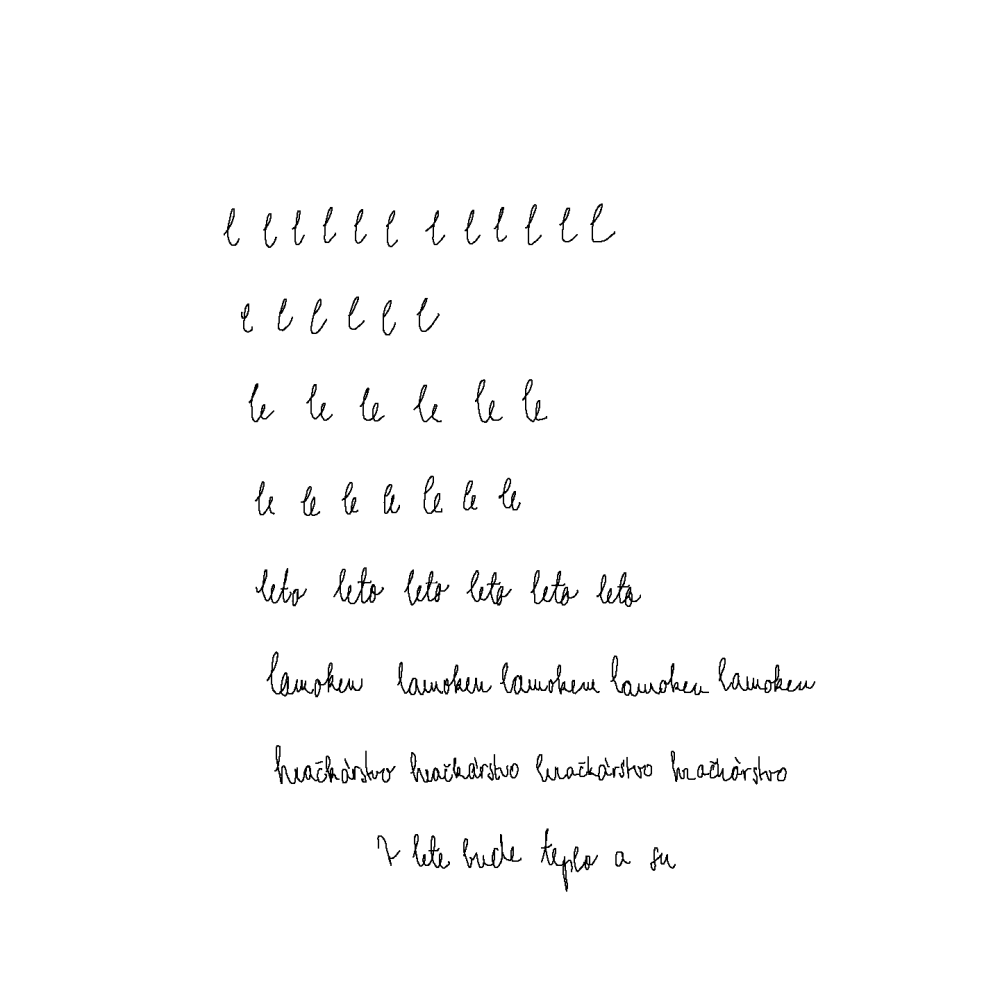 l l l l l l l l l l l l
l l l l l l
le le le le le le
le le le le le le le
leto leto leto leto leto leto
lamoken lamoken lamokem lamoken lamoken
hračkárstvo hračkárstvo hračkárstvo hračkárstvo
V lete bude teplo a su